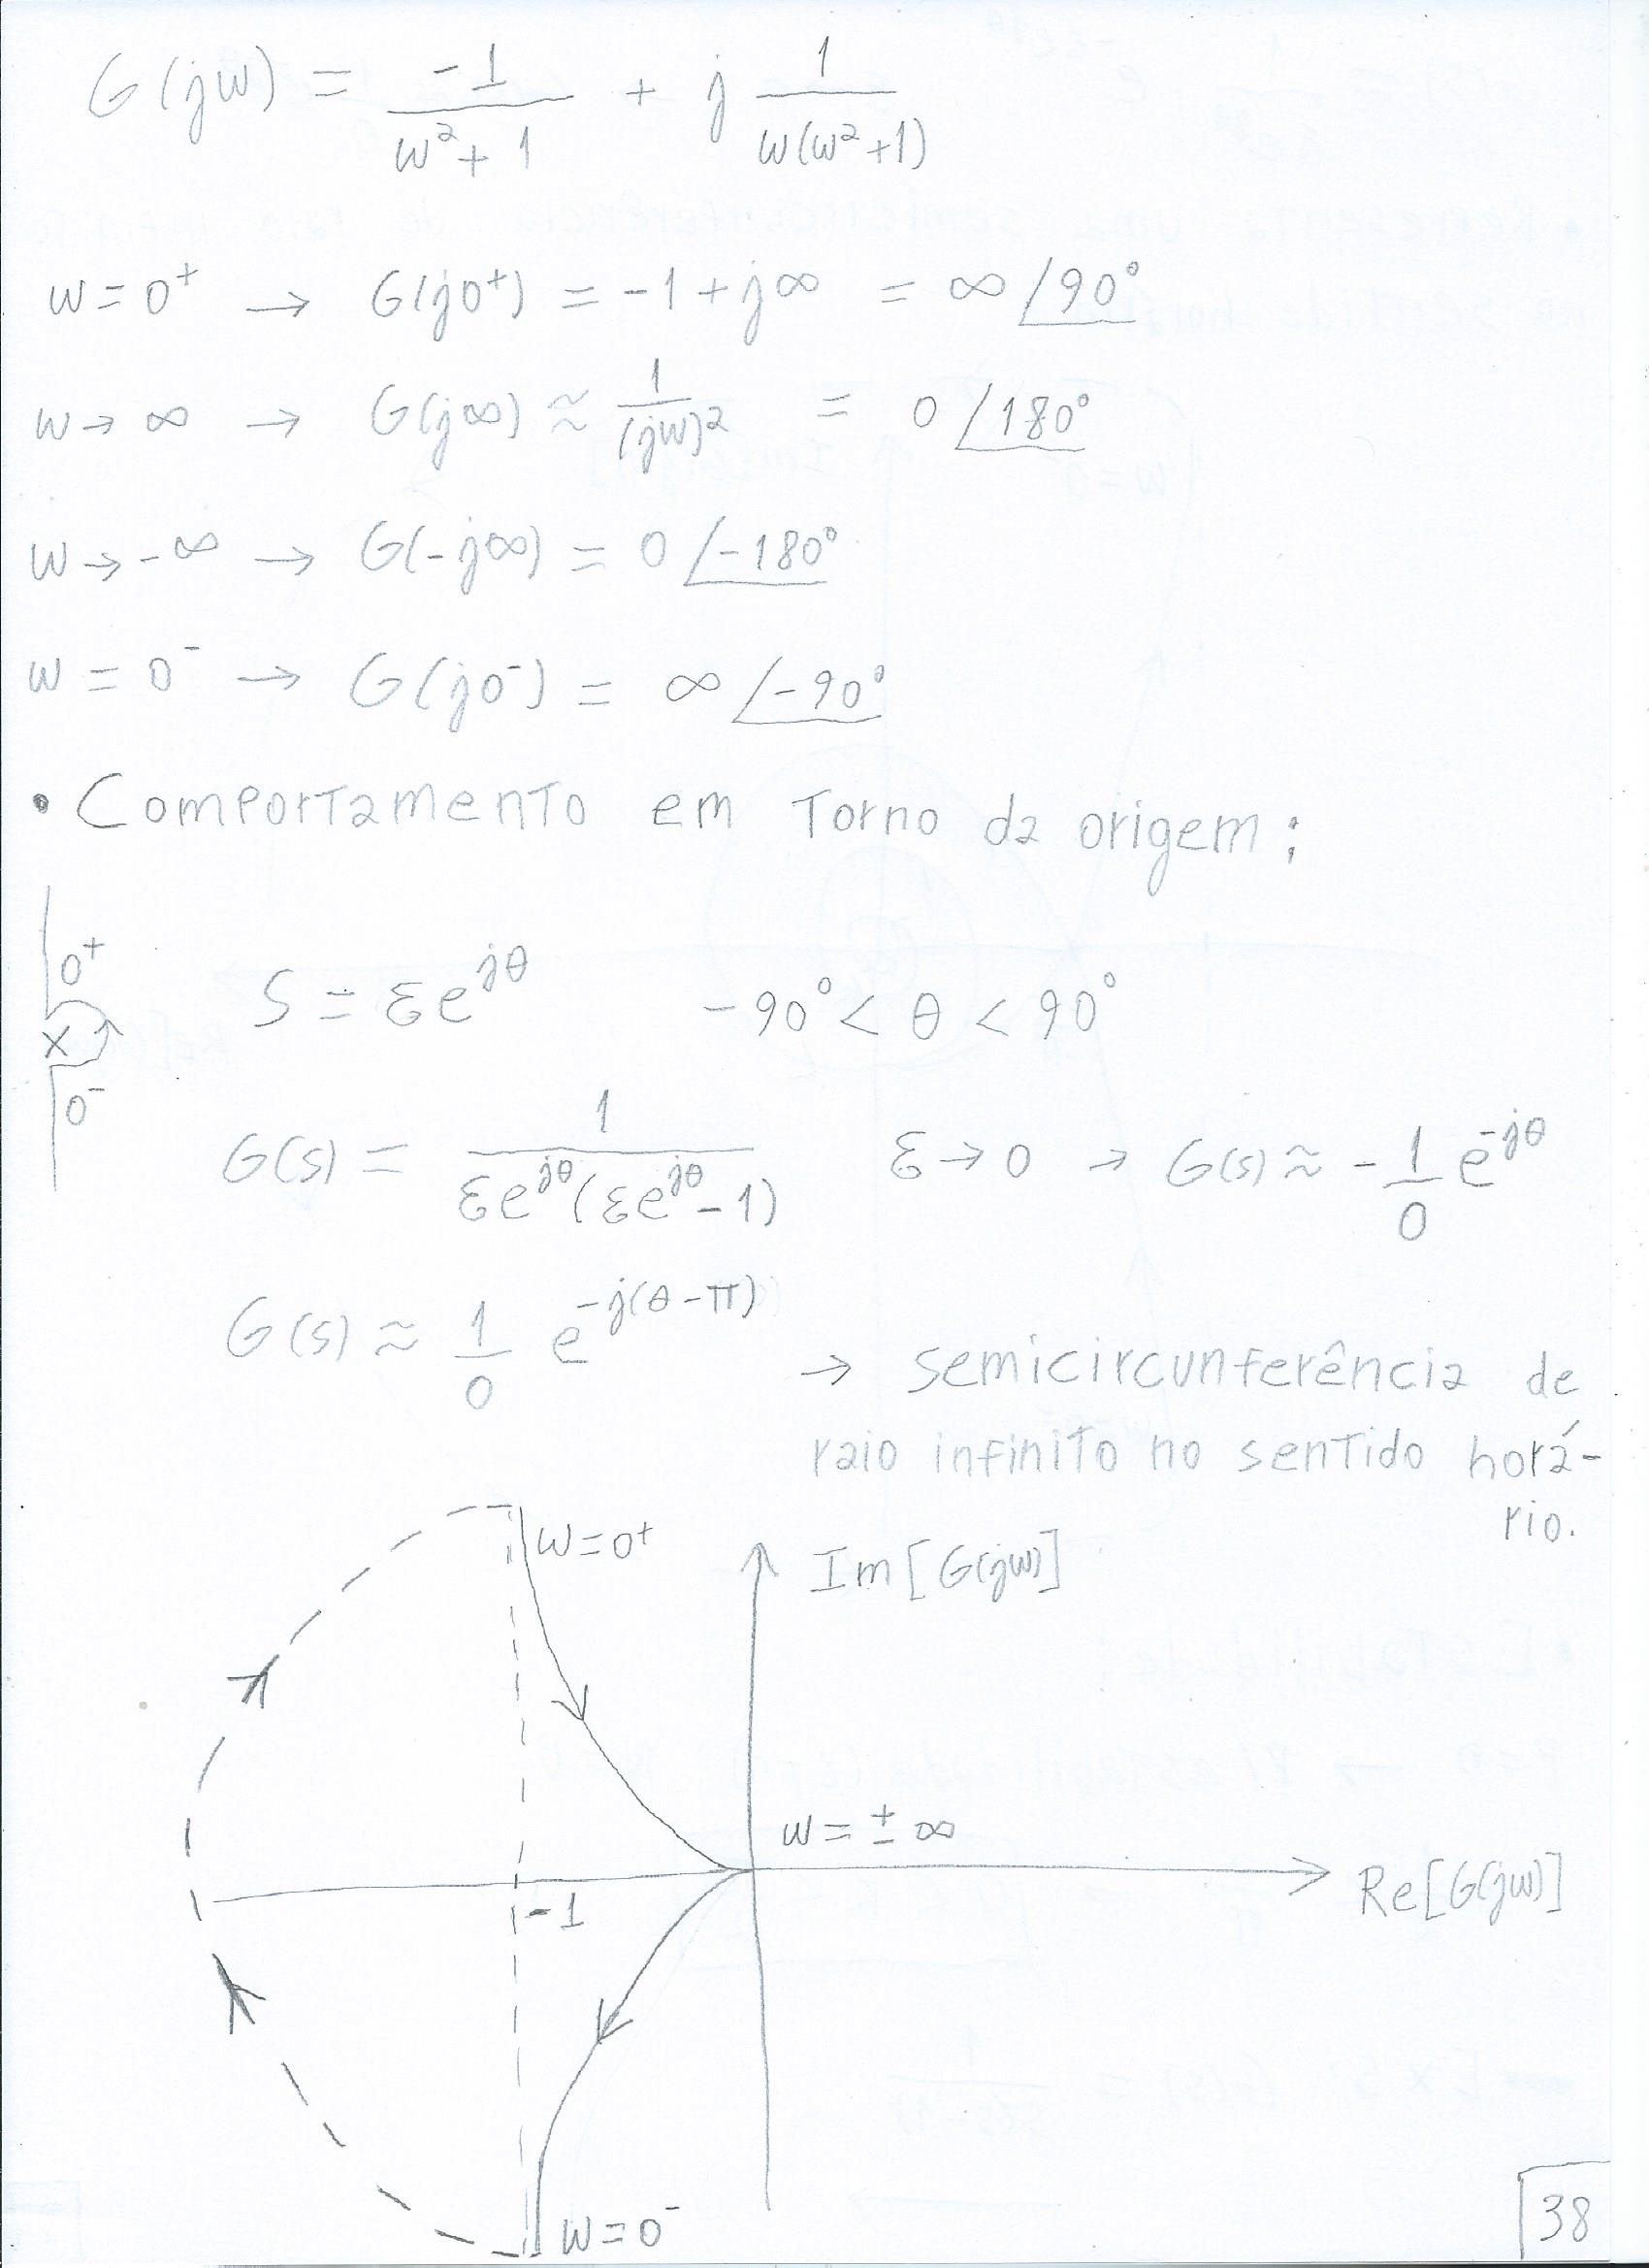 G(jw) = -1/(w²+1) + j 1/(w(w²+1))
w = 0⁺ → G(j0⁺) = -1 + j∞ = ∞ ∠90°
w → ∞ → G(j∞) ≈ 1/(jw)² = 0 ∠180°
w → -∞ → G(-j∞) = 0 ∠-180°
w = 0⁻ → G(j0⁻) = ∞ ∠-90°
• Comportamento em Torno da origem:
0⁺
x
0⁻
S = εe^(jθ) -90° < θ < 90°
G(s) = 1/(εe^(jθ)(εe^(jθ) - 1)) ε → 0 → G(s) ≈ -1/0 e^(-jθ)
G(s) ≈ 1/0 e^(-j(θ-π))
→ semicircunferência de
raio infinito no sentido horá-
rio.
w=0⁺
Im[G(jw)]
w = ±∞
-1
Re[G(jw)]
w=0⁻
38